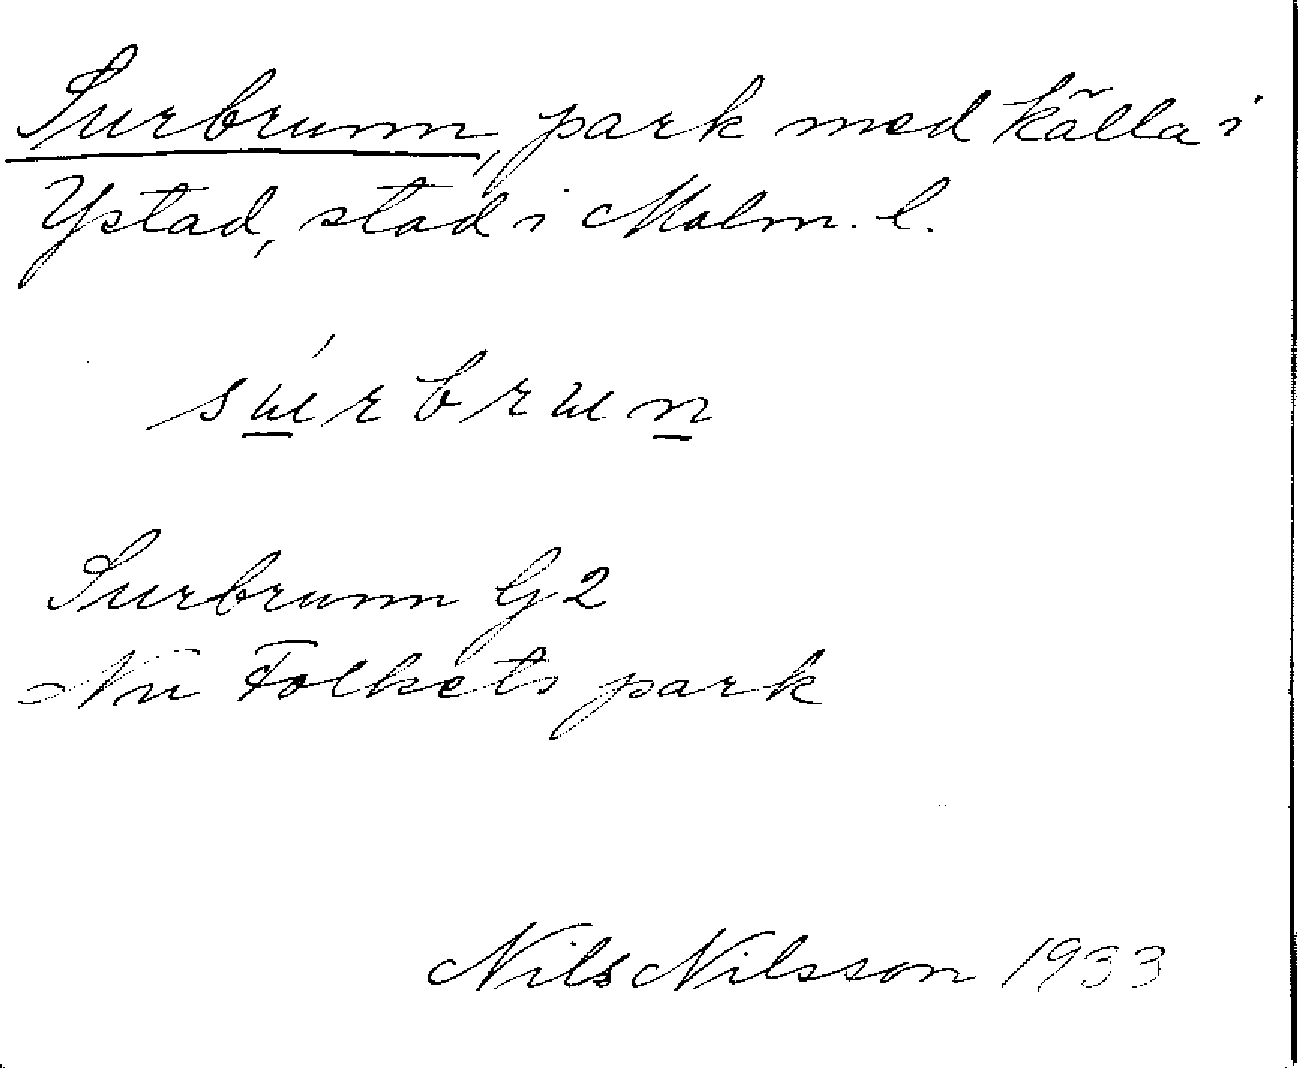 Surbrunn, park med källa i
Ystad, stad i Malm. l.
súrbrun
Surbrunn G2
Nu Folkets park
Nils Nilsson 1933